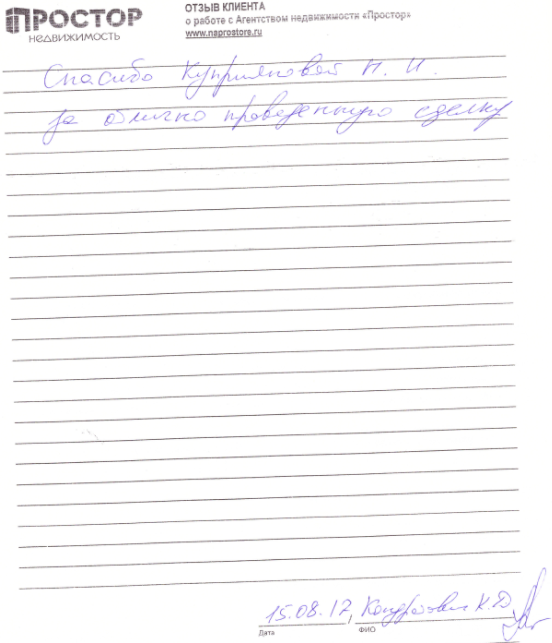 ПРОСТОР
НЕДВИЖИМОСТЬ
ОТЗЫВ КЛИЕНТА
о работе с Агентством недвижимости «Простор»
www.naprostore.ru
Спасибо Куприяновой Н. И.
за отлично проведенную сделку
15.08.17, К.Д
Дата
ФИО